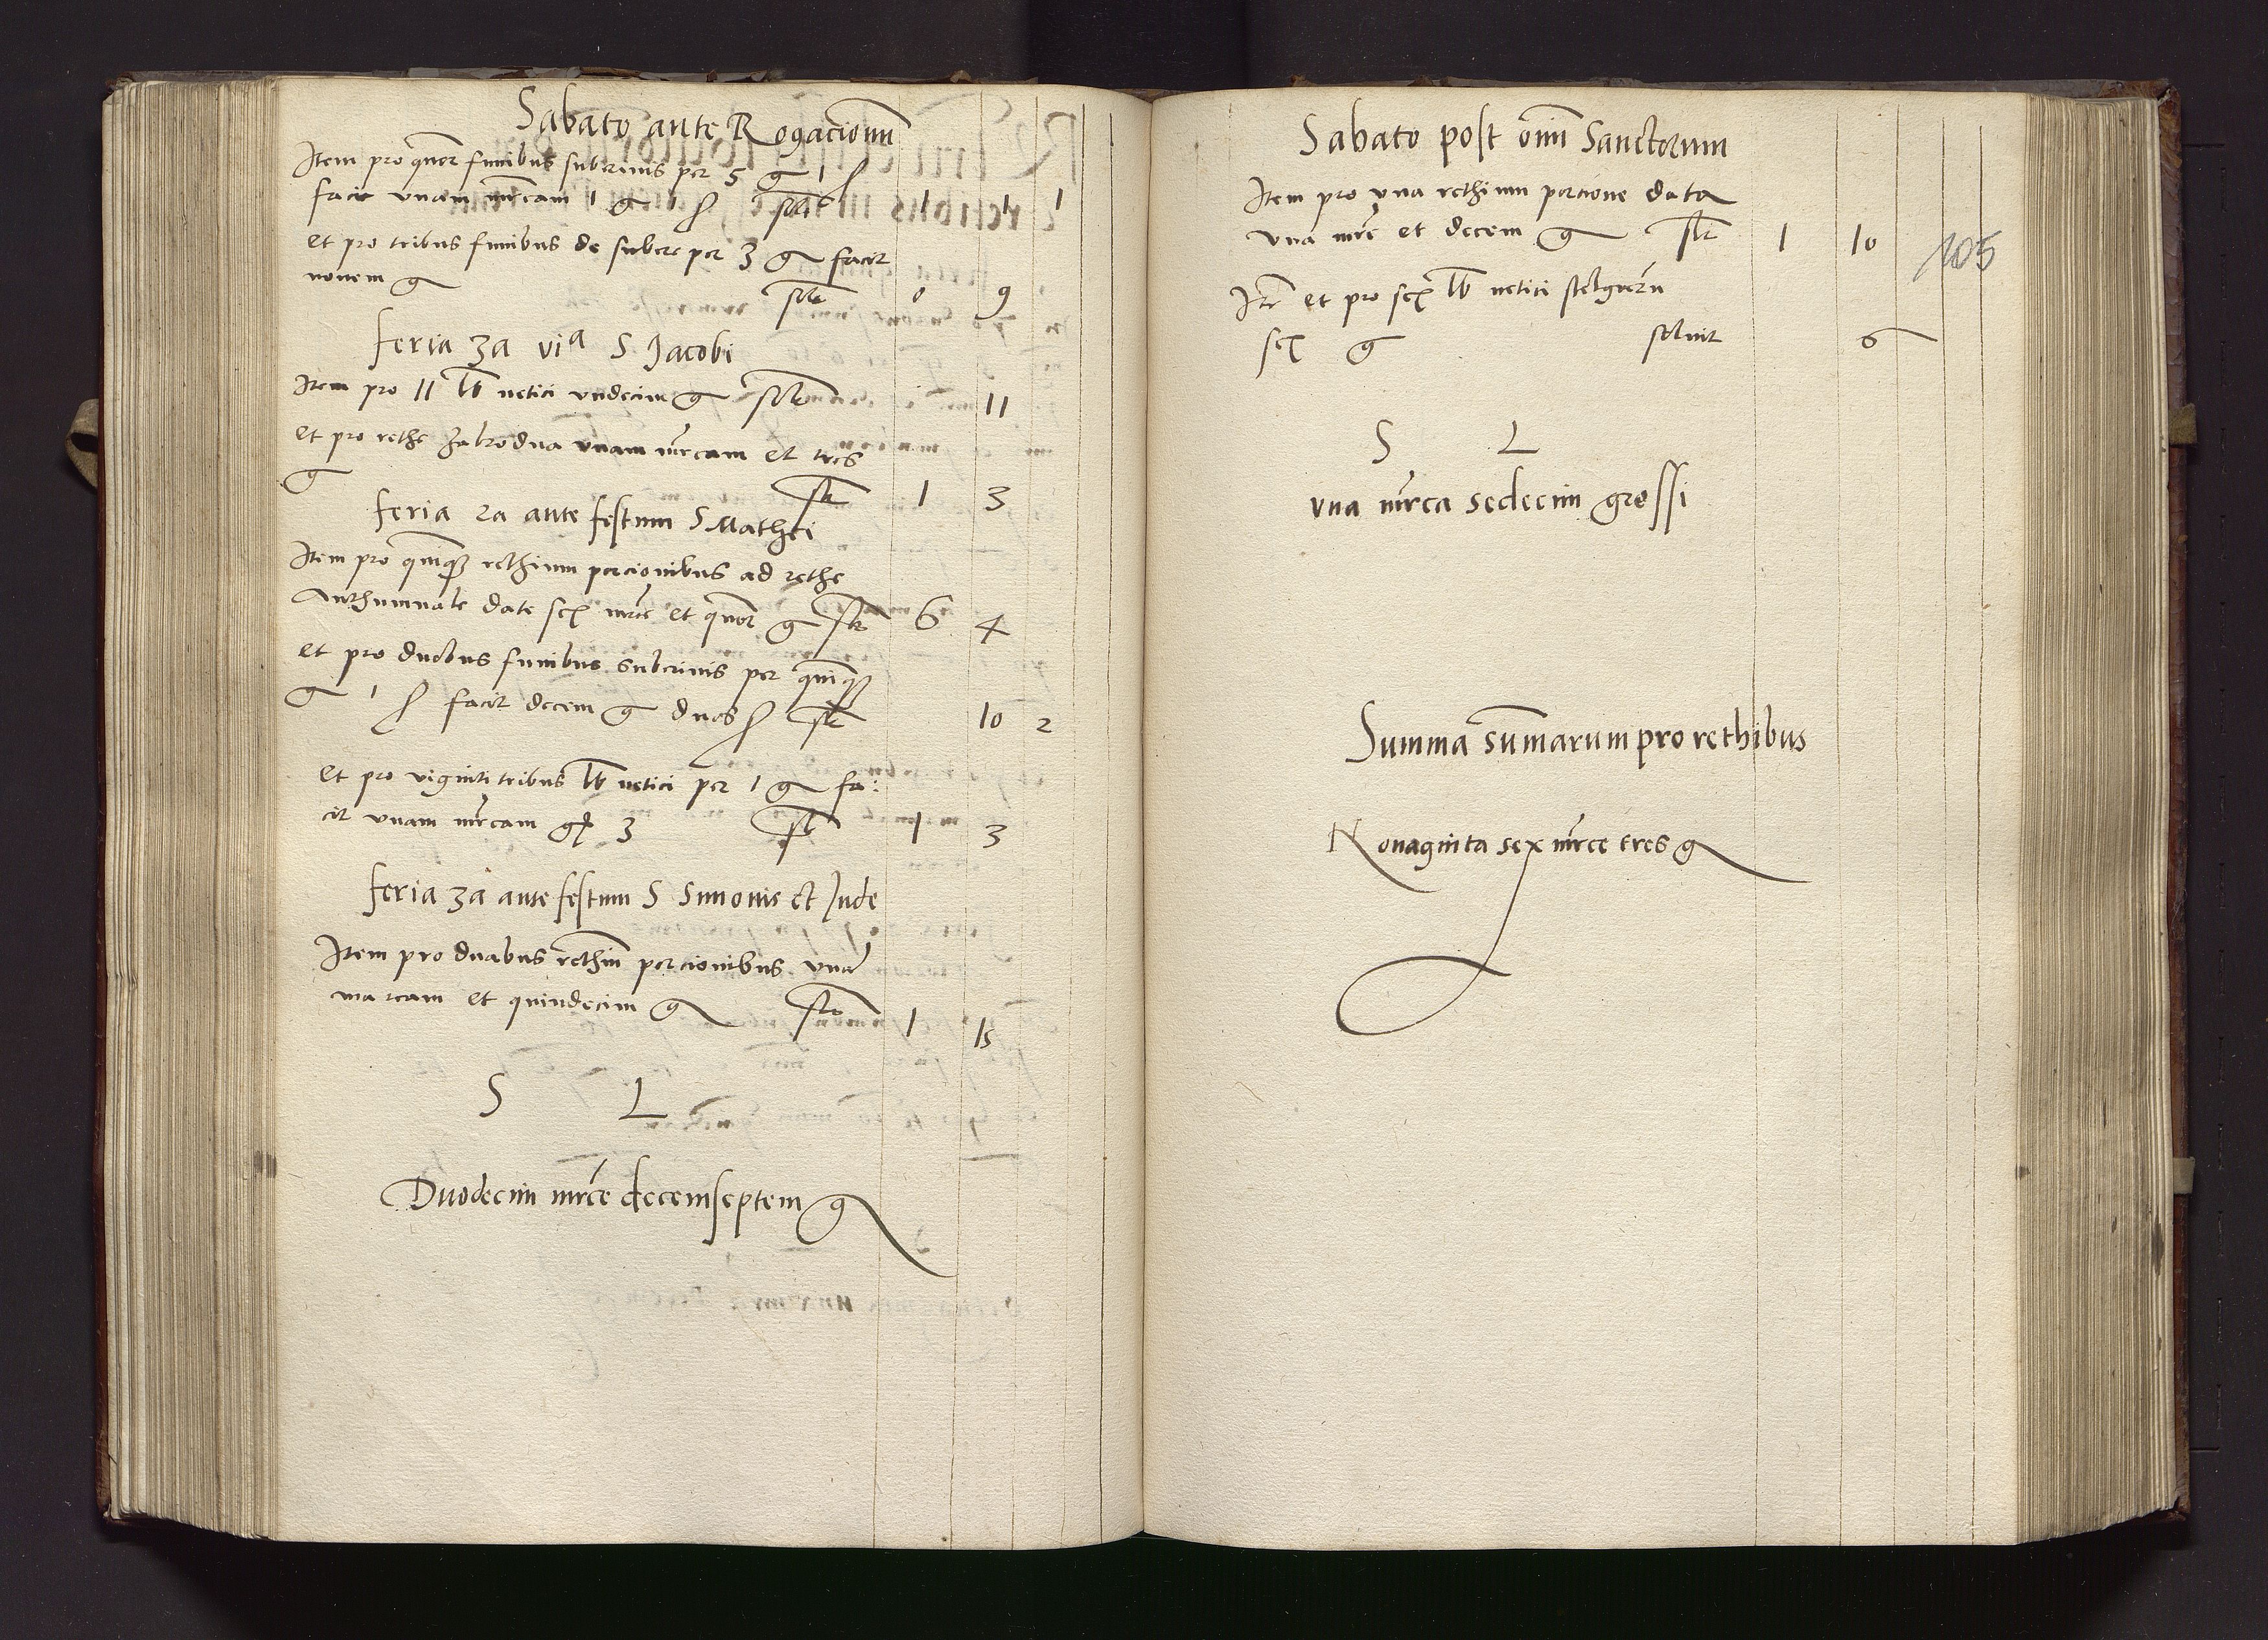 Sabato ante Rogacionū
Item pro quor funibus suberinis per 5 g 1 ſ
facit vnam mrcam 1 g 1 ſ solt 1 1 1
et pro tribus funibus de subere per 3 g facit
nouem g solt 0 9
feria 3a via S Jacobi
Item pro 11 lb netici vndecim g solt 11
et pro rethe zabrodna vnam mrcam et tres
g solt 1 3
feria 2a ante festum S Mathei
Item pro quinqz rethium porcionibus ad rethe
Authumnale date sex mrce et quor g solt 6 4
et pro duobus funibus suberinis per quinqz
g 1 ſ facit decem g duos ſ solt 10 2
et pro viginti tribus lb netici per 1 g fa:
cit vnam mrcam g 3 solt 1 3
feria 3a ante festum S Simonis et Jude
Item pro duabus rethiū porcionibus vnā
marcam et quindecim g solt 1 15
S L
Duodecim mrce decemseptem g
Sabato post oīm Sanctorum
Item pro vna rethium porcione data
vna mrc et decem g solt 1 10
105
Itē et pro sex lb netici
sex g soluit 6
S L
vna mrca sedecim grossi
Summa sūmarum pro rethibus
Nonaginta sex mrce tres g